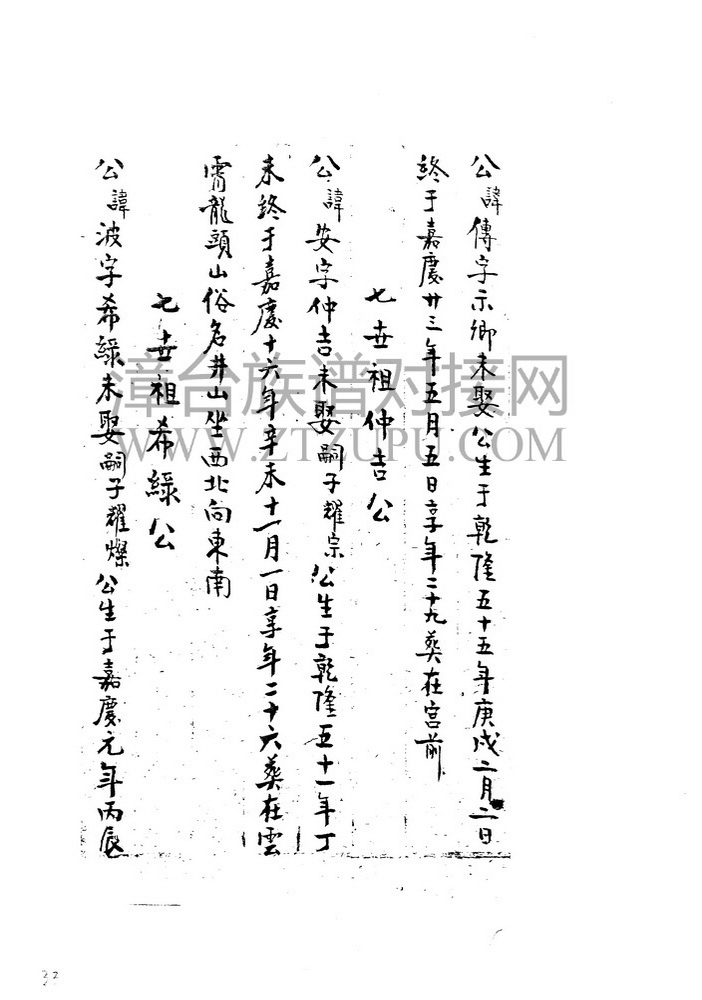 公諱傳字示卿未娶公生于乾隆五十五年庚戌二月二日
終于嘉慶廿三年五月五日享年二十九葬在宮前
七世祖仲吉公
公諱安字仲吉未娶嗣子耀宗公生于乾隆五十一年丁
未終于嘉慶十六年辛未十一月一日享年二十六葬在雲
霄龍頭山俗名井山坐西北向東南
七世祖希綠公
公諱波字希綠未娶嗣子耀燦公生于嘉慶元年丙辰
漳台族谱对接网
WWW.ZTZUPU.COM